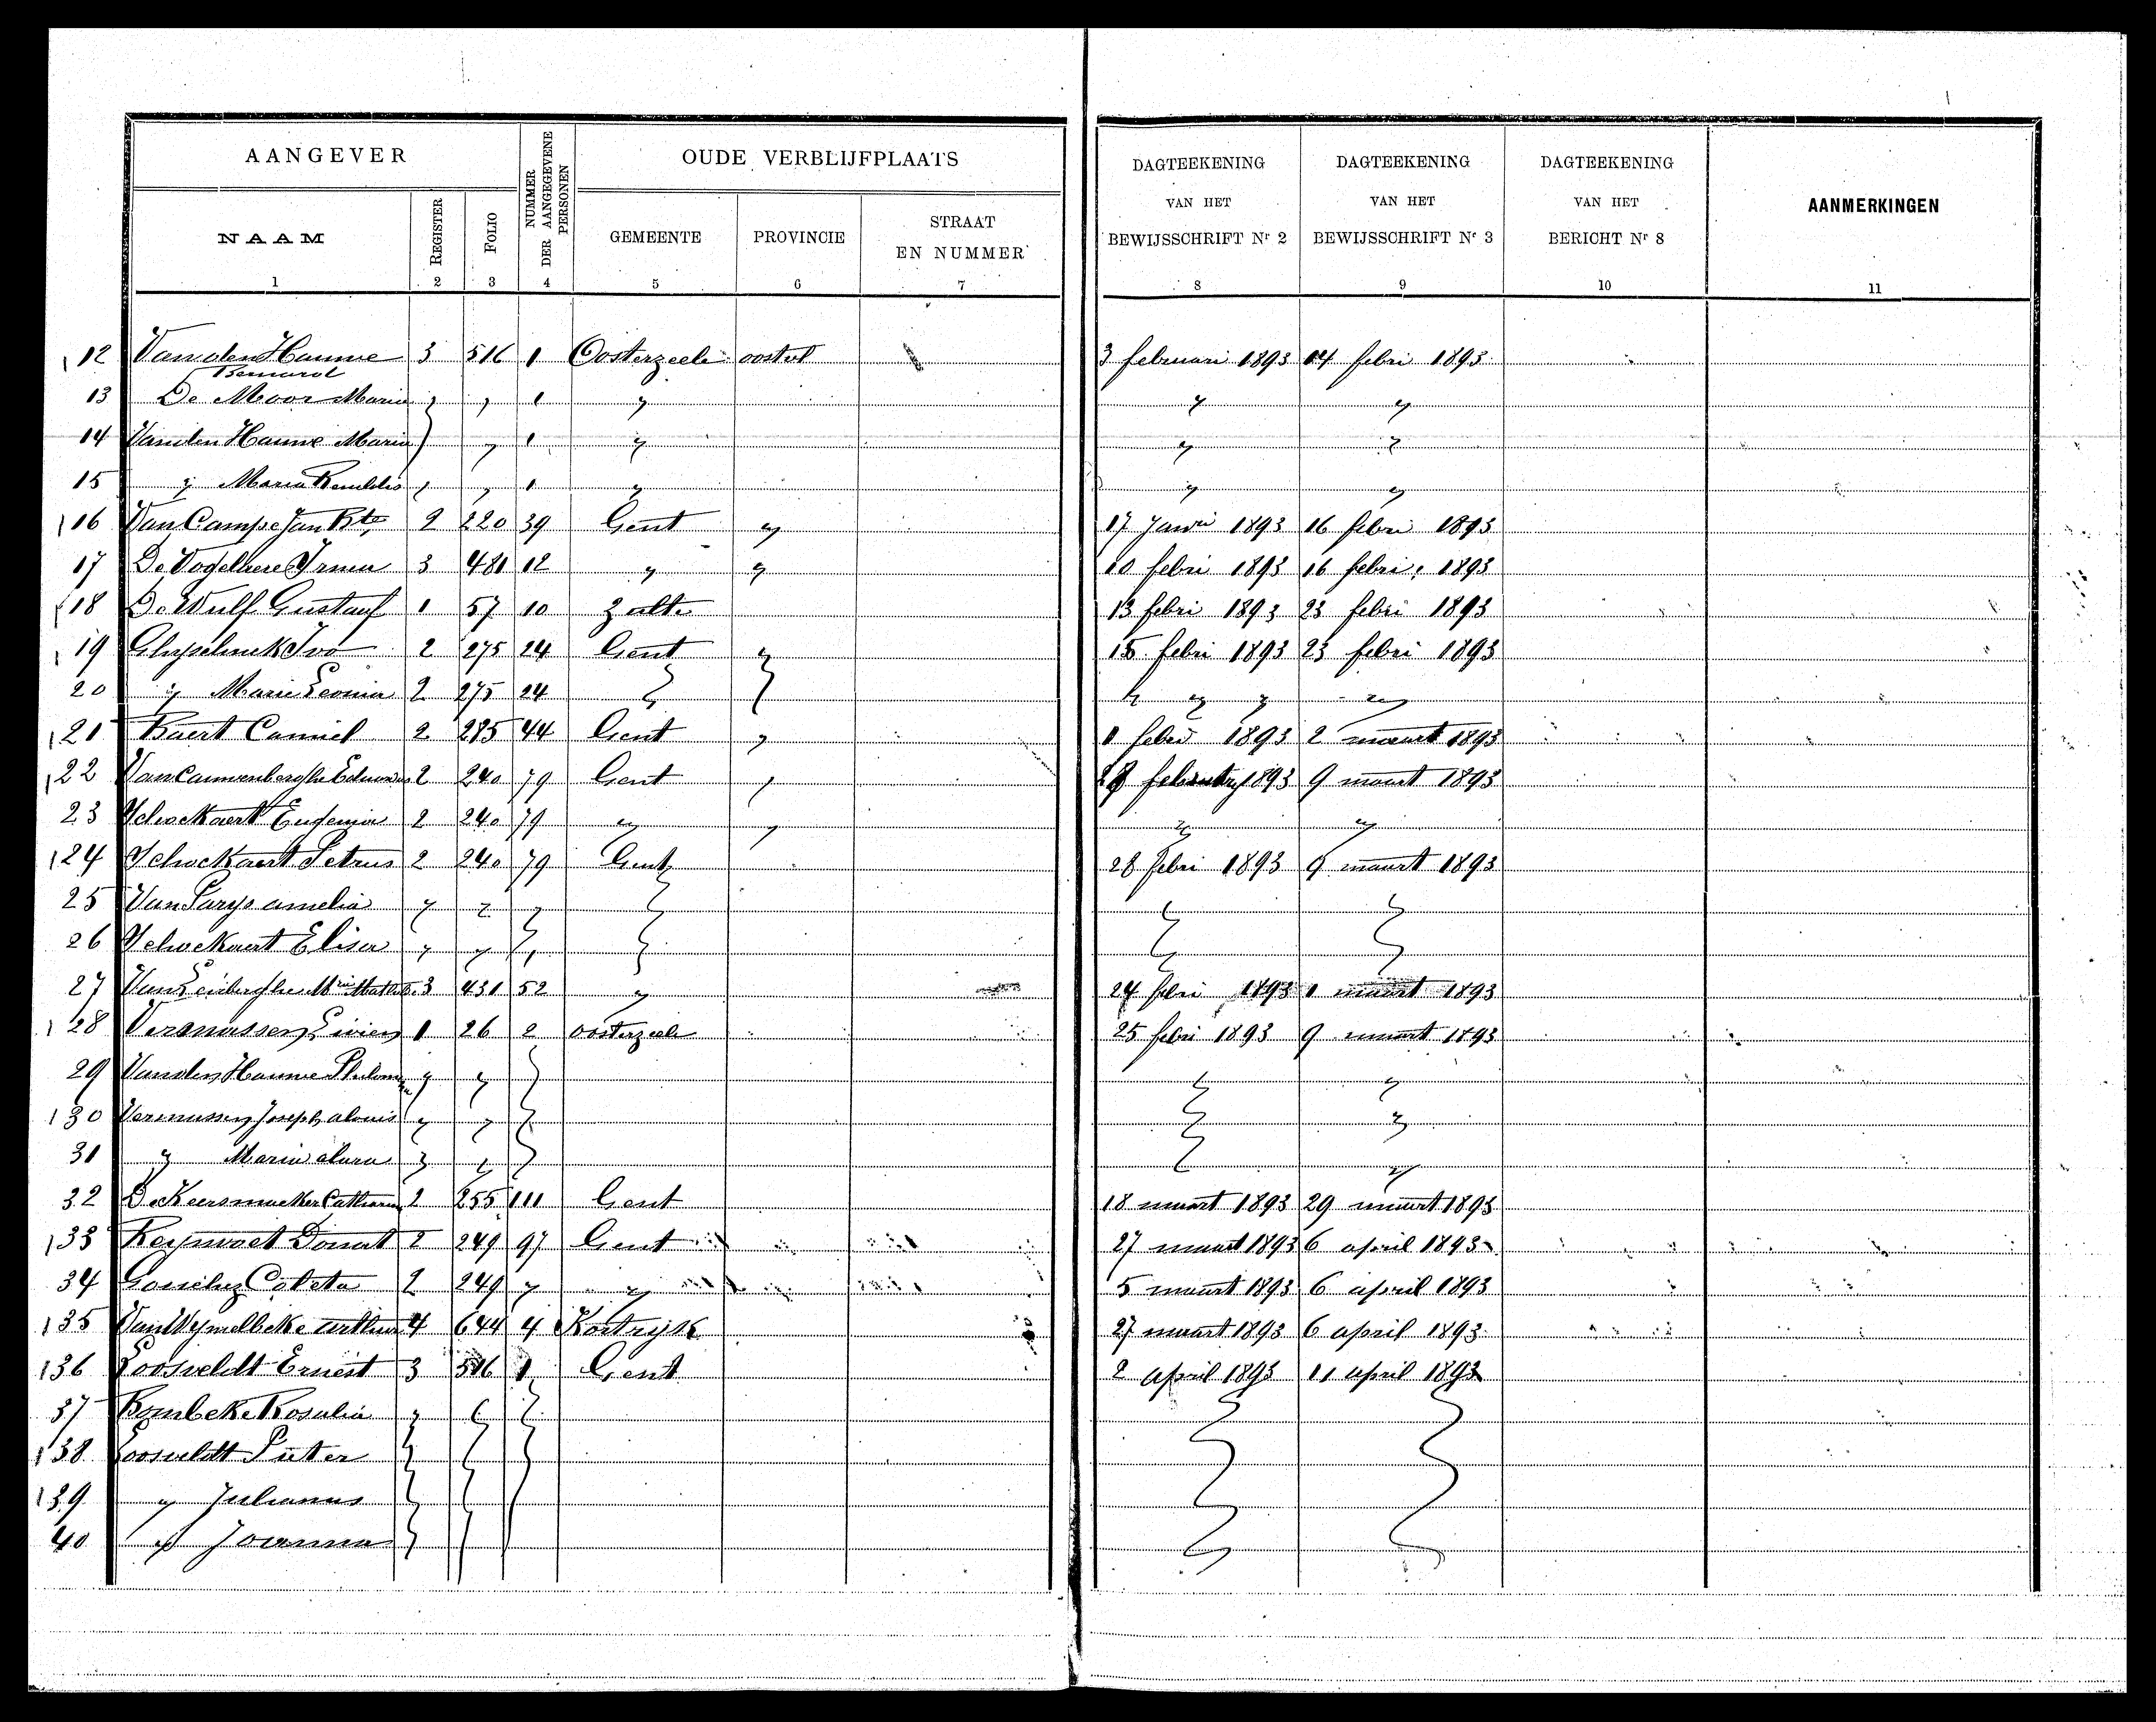 AANGEVER
NUMMER DER AANGEGEVENE PERSONEN
OUDE VERBLIJFPLAATS
DAGTEEKENING VAN HET BEWIJSSCHRIFT Nr 2
DAGTEEKENING VAN HET BEWIJSSCHRIFT Nr 3
DAGTEEKENING VAN HET BERICHT Nr 8
AANMERKINGEN
NAAM
REGISTER
FOLIO
GEMEENTE
PROVINCIE
STRAAT EN NUMMER
1 2 3 4 5 6 7 8 9 10 11
12 Van den Hauwe Bernard 3 516 1 Oosterzeele 3 februari 1893 14 febri 1893
13 De Moor Maria " " 1 " " "
14 Van den Hauwe Maria " 1 " " "
15 " Maria " " 1 " " "
16 Van Campe Jan Bte 2 220 39 Gent " 17 1893 16 febri 1893
17 De Vogelaere Irma 3 481 12 " " 10 febri 1893 16 febri 1893
18 De Wulf Gustaaf 1 57 10 Zulte 13 febri 1893 23 febri 1893
19 Ivo 2 275 24 Gent " 15 febri 1893 23 febri 1893
20 " Marie Leonia 2 275 24 " " " " " "
21 Baert Camiel 2 285 44 Gent " 1 1893 2 maart 1893
22 Van Cauwenberghe 2 240 79 Gent " 1893 9 maart 1893
23 Schockaert Eugenia 2 240 79 " " " "
24 Schockaert Petrus 2 240 79 Gent 28 febri 1893 9 maart 1893
25 Van Parys amelia " " " " " "
26 Schockaert Elisa " " " " " "
27 3 431 52 " 24 febri 1893 1 maart 1893
28 1 26 2 oosterzeele 25 febri 1893 9 maart 1893
29 Van den Hauwe " " " " "
130 Joseph " " " " "
31 " Maria " " " " "
32 De Keersmaeker 2 255 111 Gent 18 maart 1893 29 maart 1893
133 Donat 2 249 97 Gent 27 maart 1893 6 april 1893
34 Coleta 2 249 " " 5 maart 1893 6 april 1893
135 Van Wymelbeke arthur 4 644 4 Kortryk 27 maart 1893 6 april 1893
136 Loosveldt Ernest 3 516 1 Gent 2 april 1893 11 april 1893
37 Rosalia " " " " "
138 Loosveldt Pieter " " " " "
139 " Julianus " " " " "
40 " Joanna " " " " "